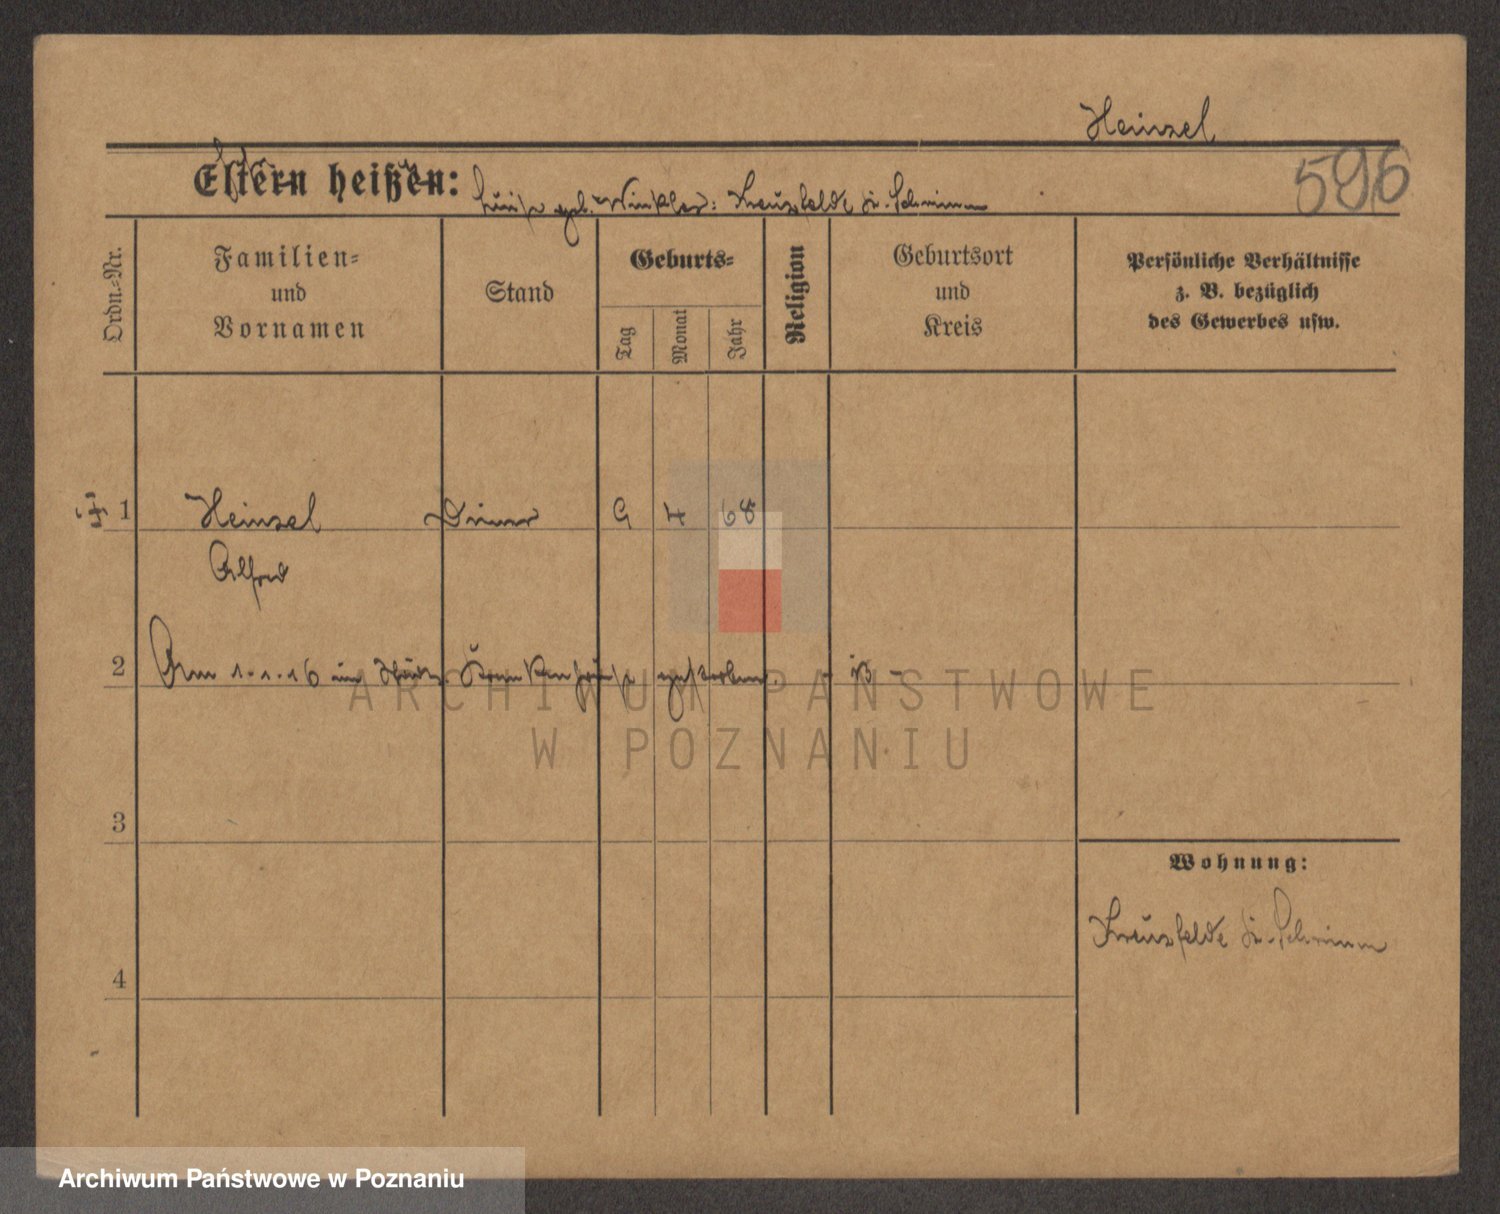 Heinzel
596
Eltern heißen:
Luise geb. Winkler: Kreuzfelde Kr. Schrimm
Ordn.-Nr.
Familien-
und
Vornamen
Stand
Geburts-
Tag
Monat
Jahr
Religion
Geburtsort
und
Kreis
Persönliche Verhältnisse
z. B. bezüglich
des Gewerbes usw.
1 Heinzel 9 4 68
Alfred
2 Am 1.1.16 im Städt. Krankenhause gestorben.
3
4
Wohnung:
Kreuzfelde Kr. Schrimm
ARCHIWUM PAŃSTWOWE
W POZNANIU
Archiwum Państwowe w Poznaniu